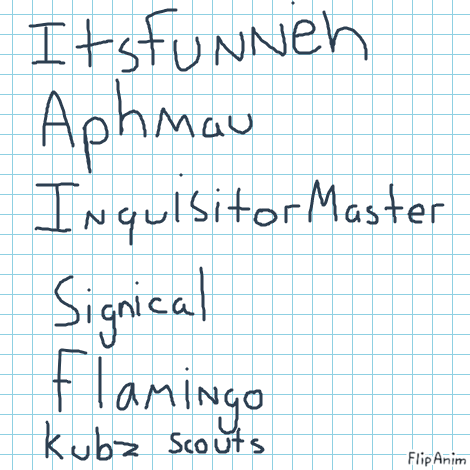 ItsFunneh
Aphmau
InquisitorMaster
Signical
Flamingo
Kubz Scouts
FlipAnim